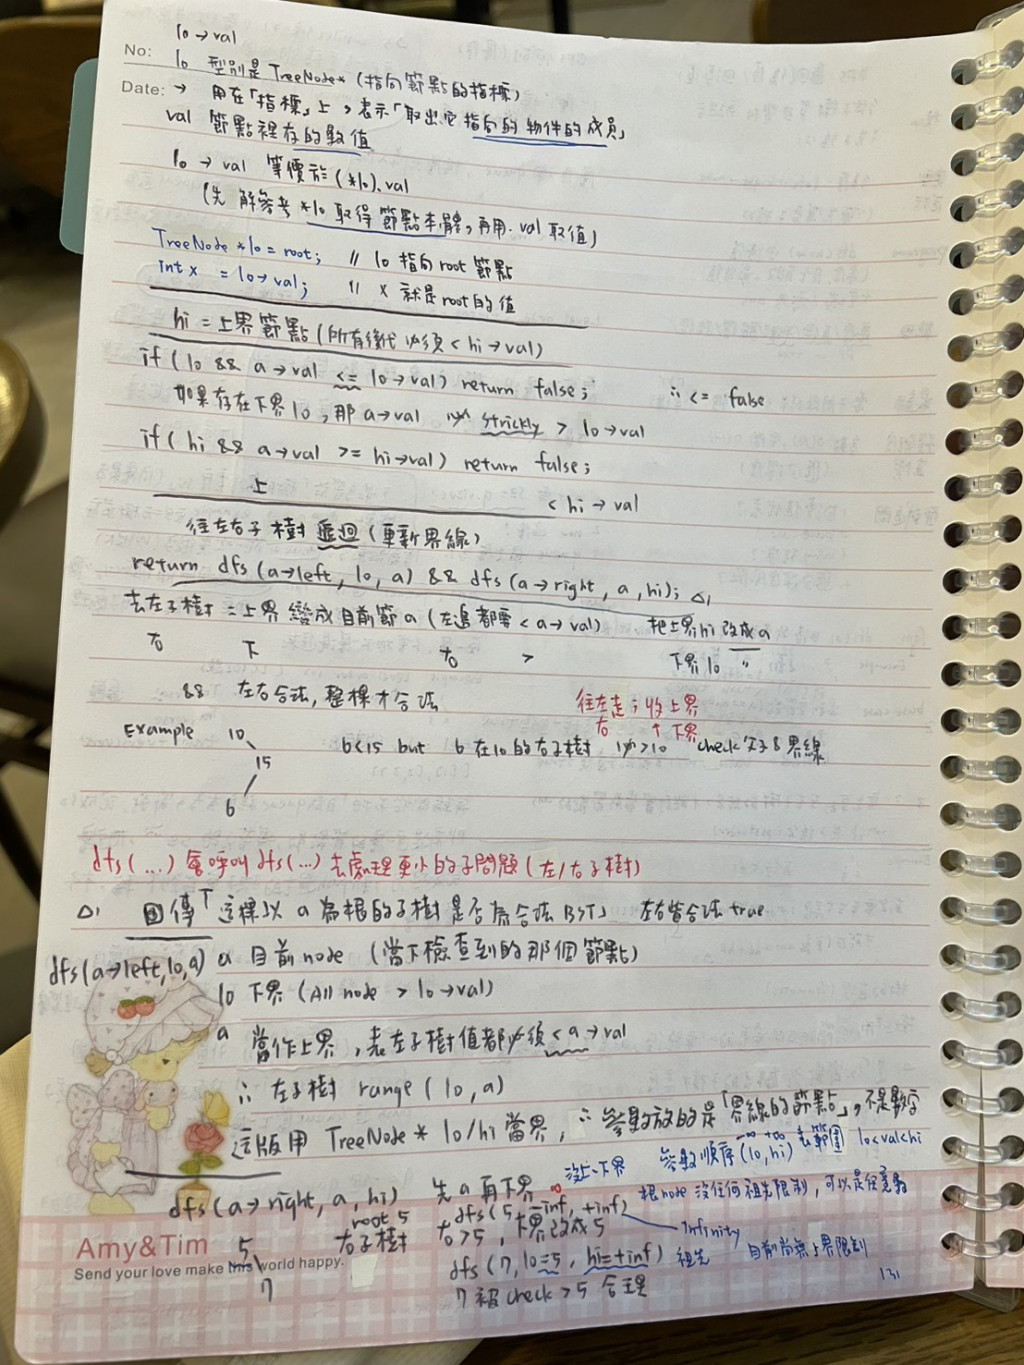 lo → val
No: lo 型別是 TreeNode* (指向節點的指標)
Date: → 用在「指標」上,表示「取出它指向的物件的成員」
val 節點裡存的數值
lo → val 等價於 (*lo).val
(先解參考 *lo 取得節點本體,再用 .val 取值)
TreeNode *lo = root; // lo 指向root 節點
int x = lo→val; // x 就是root的值
hi = 上界節點 (所有後代必須 < hi→val)
if ( lo && a→val <= lo→val) return false; ∴ <= false
如果存在下界 lo, 那 a→val 必 strickly > lo→val
if ( hi && a→val >= hi→val) return false;
上 < hi → val
往左右子樹 遞迴 (更新界線)
return dfs (a→left, lo, a) && dfs (a→right, a, hi); △1
去左子樹 = 上界變成目前節a (左邊都要 < a→val) 把上界hi 改成a
右 下 右 > 下界 lo 〃
&& 左右合法, 整棵才合法
往左走 ; 收上界
右 ↑ 下界
Example 10 6<15 but 6 在10的右子樹 必>10 check 界線
15
6
dfs (...) 會呼叫 dfs (...) 去處理更小的子問題 (左/右子樹)
△1 回傳「這棵以 a 為根的子樹是否為合法 BST」 左右皆合法 true
dfs(a→left, lo, a) a 目前 node (當下檢查到的那個節點)
lo 下界 (All node > lo→val)
a 當作上界, 表左子樹值都必須 < a→val
∴ 左子樹 range ( lo, a)
這版用 TreeNode * lo/hi 當界, ∴ 參數放的是「界線的節點」, 不是數字
參數順序 (lo, hi) 表範圍 lo<val<hi
-∞ +∞
dfs (a→right, a, hi) 先 a 再下界 沒上、下界
根node 沒任何祖先限制, 可以是任意數
root 5 dfs ( 5, -inf, +inf) Infinity
5 右子樹 右>5, 下界改成 5
7 dfs ( 7, lo=5, hi=+inf) 祖先 目前尚無上界限制
7 被 check > 5 合理
131
Amy&Tim
Send your love make this world happy.